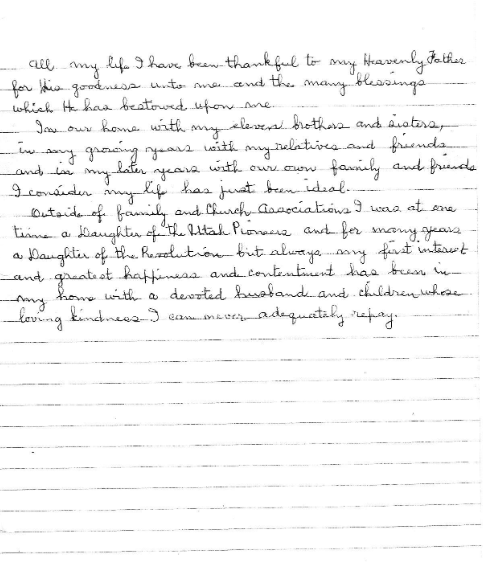 All my life I have been thankful to my Heavenly Father
for His goodness unto me and the many blessings
which He has bestowed upon me.
In our home with my eleven brothers and sisters,
in my growing years with my relatives and friends
and in my later years with our own family and friends
I consider my life has just been ideal.
Outside of family and Church Associations I was at one
time a Daughter of the Utah Pioneers and for many years
a Daughter of the Revolution but always my first interest
and greatest happiness and contentment has been in
my home with a devoted husband and children whose
loving kindness I can never adequately repay.